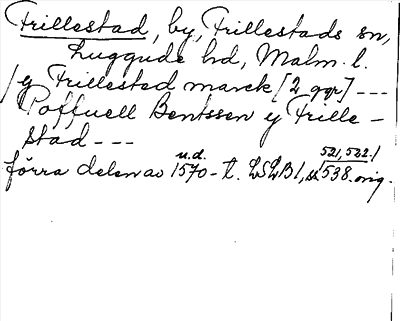 Frillestad, by, Frillestads sn,
Luggude hd, Malm. l.
/y Frillestad marck [2 ggr] ---
Poffuell Bentssen y Frille-
stad ---
u.d. 521, 522./
förra delen av 1570-t. LSLB1, s. 538. orig.